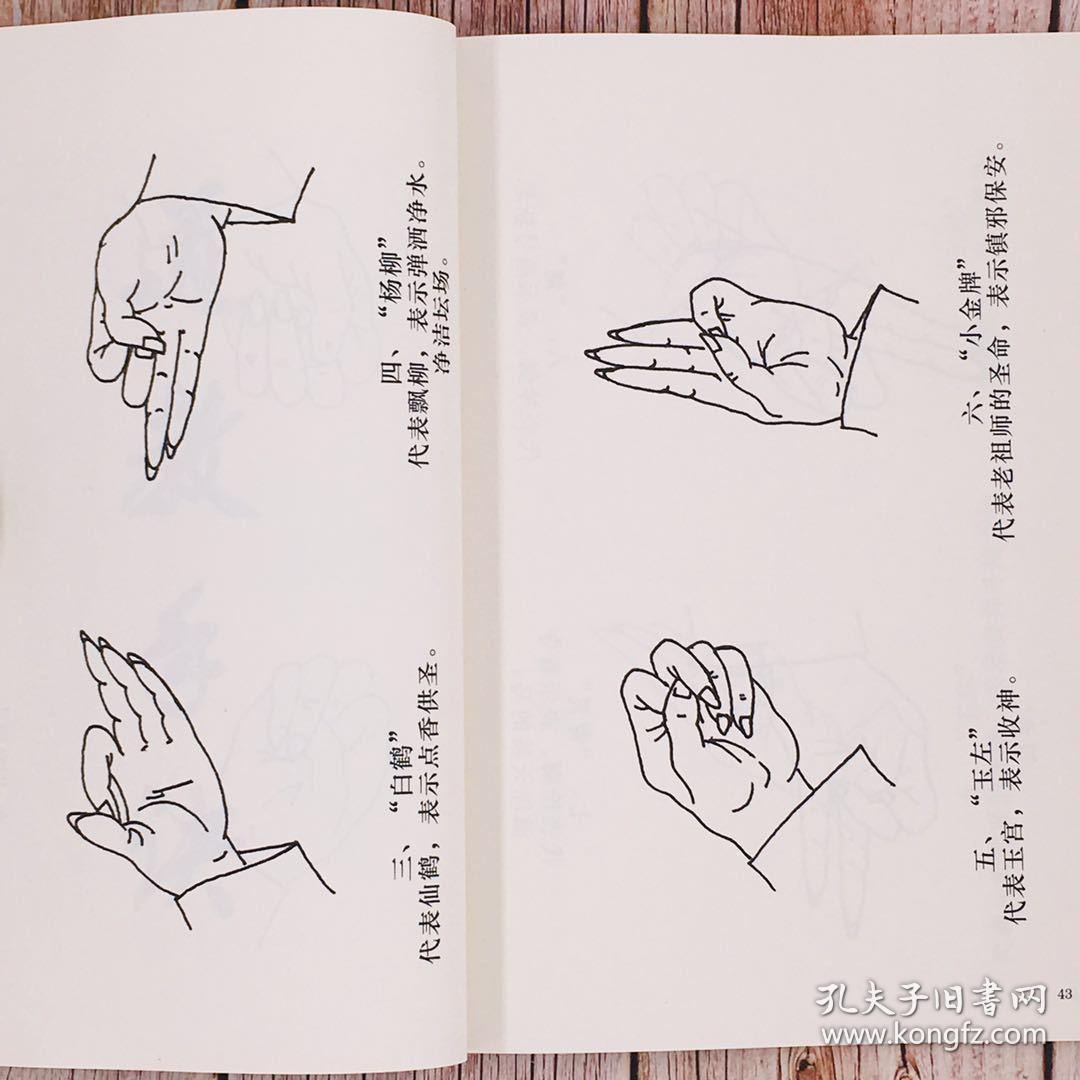 三、“白鹤”
代表仙鹤，表示点香供圣。
四、“杨柳”
代表飘柳，表示弹洒净水。
净洁坛场。
五、“玉左”
代表玉宫，表示收神。
六、“小金牌”
代表老祖师的圣命，表示镇邪保安。
43
孔夫子旧书网
www.kongfz.com